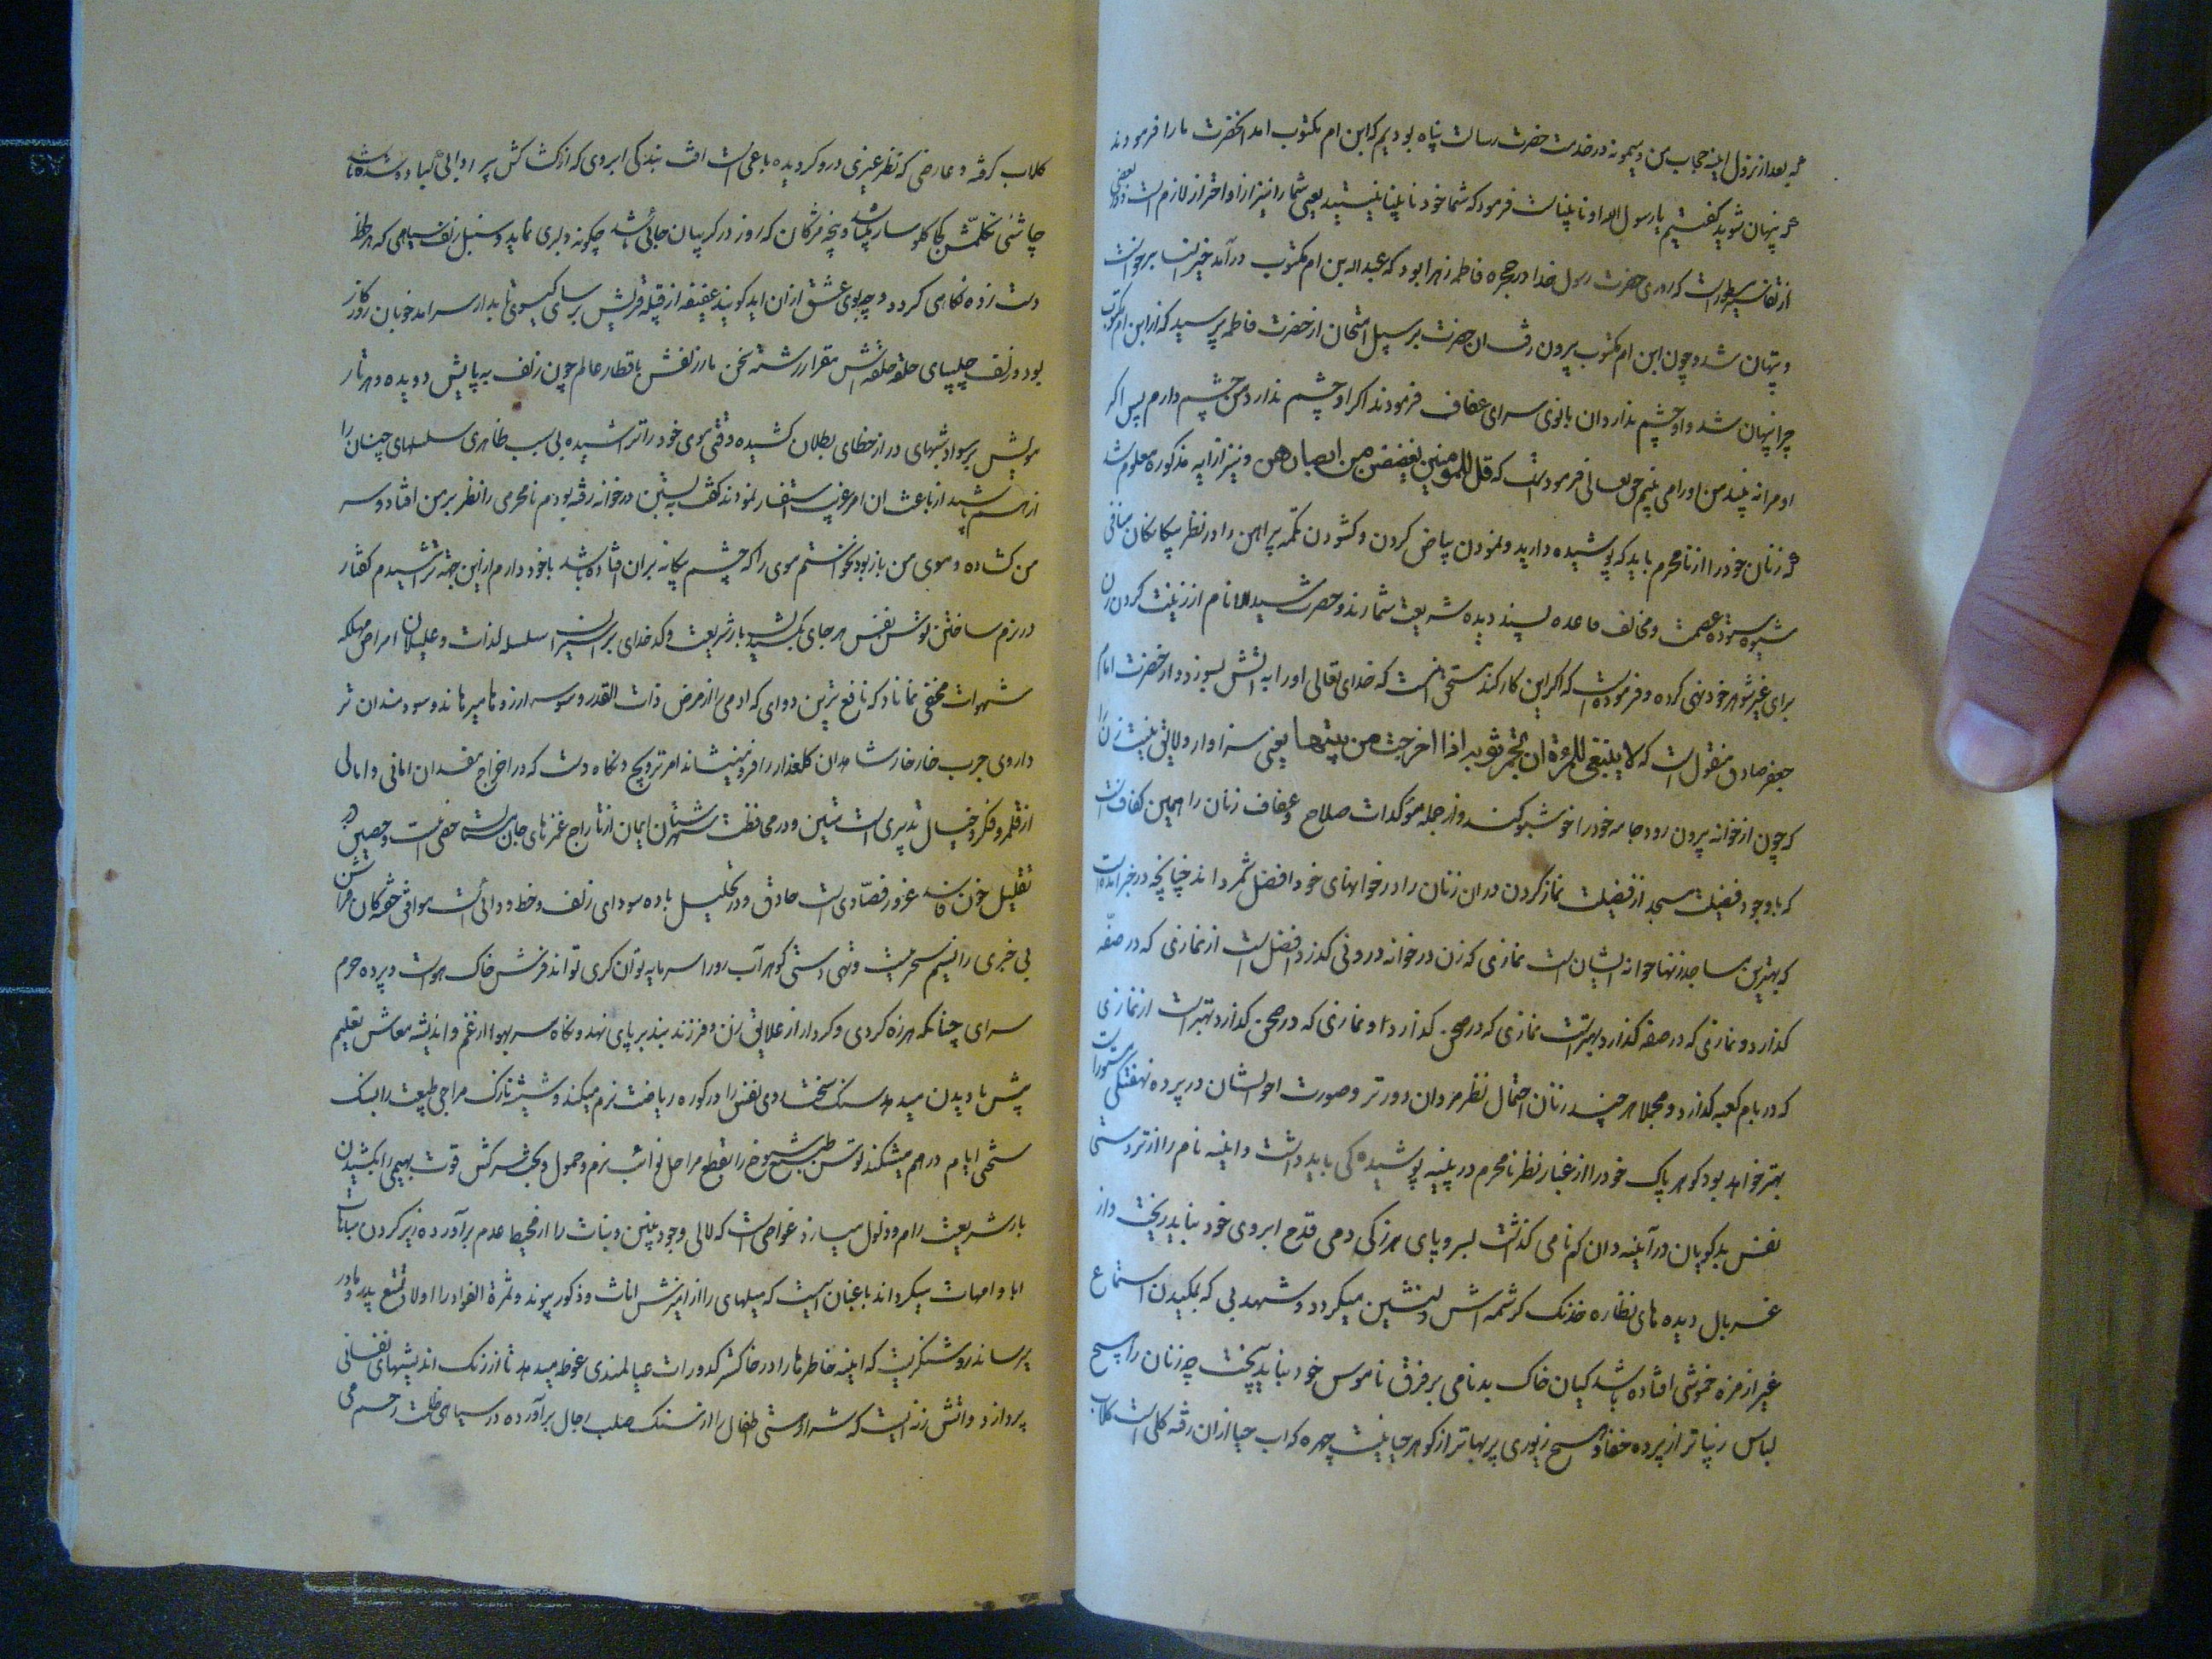 که بعد از نزول آیه حجاب من و میمونه در خدمت حضرت رسالت پناه بودیم که ابن ام مکتوب آمد آنحضرت ما را فرمودند
که پنهان شوید گفتیم یا رسول الله او نابیناست فرمود که شما خود نابینا نیستید یعنی شما را نیز از او احتراز لازم است و در بعضی
از تفاسیر مسطور است که روزی حضرت رسول خدا در حجره فاطمه زهرا بود که عبدالله بن ام مکتوب درآمد خیر النسا برخواست
و پنهان شد و چون ابن ام مکتوب بیرون رفت ان حضرت بر سبیل امتحان از حضرت فاطمه پرسید که از ابن ام مکتوب
چرا پنهان شدی و او چشم ندارد ان بانوی سرای عفاف فرمودند اکر او چشم ندارد من چشم دارم پس اکر
او مرا نه بیند من او را می بینم حق تعالی فرموده است که قل للمومنین یغضضن من ابصارهن و نیز از آیه مذکوره معلوم شد
که زنان خود را از نامحرم باید که پوشیده دارید و نمودن بیاض کردن و کشودن تکمه پیراهن را در نظر بیکانکان منافی
شیوه ستوده عصمت و مخالف قاعده پسندیده شریعت شمارند و حضرت سید الانام از زینت کردن زن
برای غیر شوهر خود نهی کرده و فرموده است که اکر این کار کند مستحق انست که خدای تعالی او را به آتش بسوزد و از حضرت امام
جعفر صادق منقول است که لا ینبغی للمرءة ان تجمر ثوبها اذا اخرجت من بیتها یعنی سزاوار و لایق نیست زن را
که چون از خوانه بیرون رود جامه خود را خوشبو کند و از جمله مؤکدات صلاح و عفاف زنان را همین کفافست
که با وجود فضیلت مسجد از فضیلت نماز کردن در ان زنان را در خوانهای خود افضل شمرده اند چنانچه در خبر آمده است
که بهترین مساجد زنها خوانه ایشان است نمازی که زن در خوانه درونی کذارد افضل است از نمازی که در صفّه
کذارد و نمازی که در صفه کذارد بهتر است نمازی که در صحن کذارد و نمازی که در صحن کذارد بهتر است از نمازی
که در بام کعبه کذارد و مجملا هر چند زنان از احتمال نظر مردان دورتر و صورت احوالشان در پرده نهفتکی مستورتر است
بهتر خواهد بود کوهر پاک خود را از غبار نظر نامحرم در پنبه پوشیده کی باید داشت و آینه نام را از تردستی
نفس بدکویان در آینه دان کم نامی کذاشت بسر و پای هرزکی دمی قدح ابروی خود نباید ریخت و از
غربال دیده های نظاره خدنک کرشمه اش دلنشین میکردد و شهد لبی که بمکیدن استماع
غیر از مزه خموشی افتاده باشد کیان خاک بدنامی بر فرق ناموس خود نباید بیخت چه زنان را هیچ
لباس زیباتر از پرده خفا و هیچ زیوری پربهاتر از کوهر حیا نیست چهره که آب حیا از ان رفته کلی است کلاب
کلاب کرفته و عارضی که نظر غیری در و کردیده باغی است افت بندکی ابروی که از کشاکش پر
چاشنی تکلمش دلبری نماید و سنبل زلف سیاهی که هر لحظه
دست زده نکاهی کردد و چه بوی عشق از ان اید کویند عفیفه از قبیله قریش برسای کیسوی تابدار سرآمد خوبان روزکار
بود و زلف چلیپای حلقه حلقه اش مقراز رشته سخن ما زلفش باقطار عالم چون زلف به پایش دویده و هر تار
مویش بر سواد شبهای دراز خطای بطلان کشیده وقتی موی خود را تراشیده بی سبب ظاهری سلسلهای چنان را
از هم پاشید از باعث ان امر غریب استفسار نمودند کفت به بستن در خوانه رفته بودم نامحرمی را نظر بر من افتاد و سر
من کشاده و موی من باز بود نخواستم موی را که چشم بیکانه بران افتاده باشد با خود دارم ازین جهت تراشیدم کفتار
در رام ساختن توسن نفس شریعت و کدخدای لذات و علیلان امراض مهلکه
شهوات مخفی نماناد که نافع ترین دوای که ادمی را از مرض ذات القدر و سوسه ارزوها میرهاند و سودمندان تر
داروی جرب خارخار شاهدان کلعذار را فرو مینشاند امر تزویج و نکاح است که در اخراج مفسدان امانی و امالی
از قلمرو فکر و خیال تدبیری است متین و در محافظت شهرستان ایمان از تاراج غمزهای جان ستان حصنی است حصین در
تقلیل خون فاسد غرور فصّادی است حاذق و در تحلیل باده سودای زلف و خط دوائیست موافق خفته کان فراش
بی خبری را نسیم سحریست و تهی دستی کوهر آب رو را سرمایه توانکری تواند فرش خاک هواست و پرده حرم
سرای چنانکه هرزه کردی و کردار از علایق زن و فرزند بند بر پای نهد و نکاه سر بهوا را از غم و اندیشه معاش تعلیم
پیش پا دیدن میدهد سنک سخت روی نفس را در کوره ریاضت نرم میکند و شیشه نازک مزاجی طبیعت را بسنک
سختی ایام درهم میشکند توسن طبع شموخ را بقطع مراحل نوائب نرم و حمول و بختی سرکش قوت بهیمی را بکشیدن
بار شریعت رام و ذلول میسازد غواصی است که لالی وجود بنین و بنات را از محیط عدم برآورده زیر کردن ساعات
ابا و امهات میکرداند باغبان است که میلهای را از امیزش اناث و ذکور پیوند و ثمرة الفواد را اولاد تمتع پدر و مادر
میرساند روشنکریست که آینه خاطرها را در خاکستر کدورات عیالمندی غوطه میدهد تا از زنک اندیشهای نفسانی
پردازد و آتش زنه ایست که شراره هستی اطفال را از سنک صلب رجال برآورده در سیاهی ظلمت رحم می